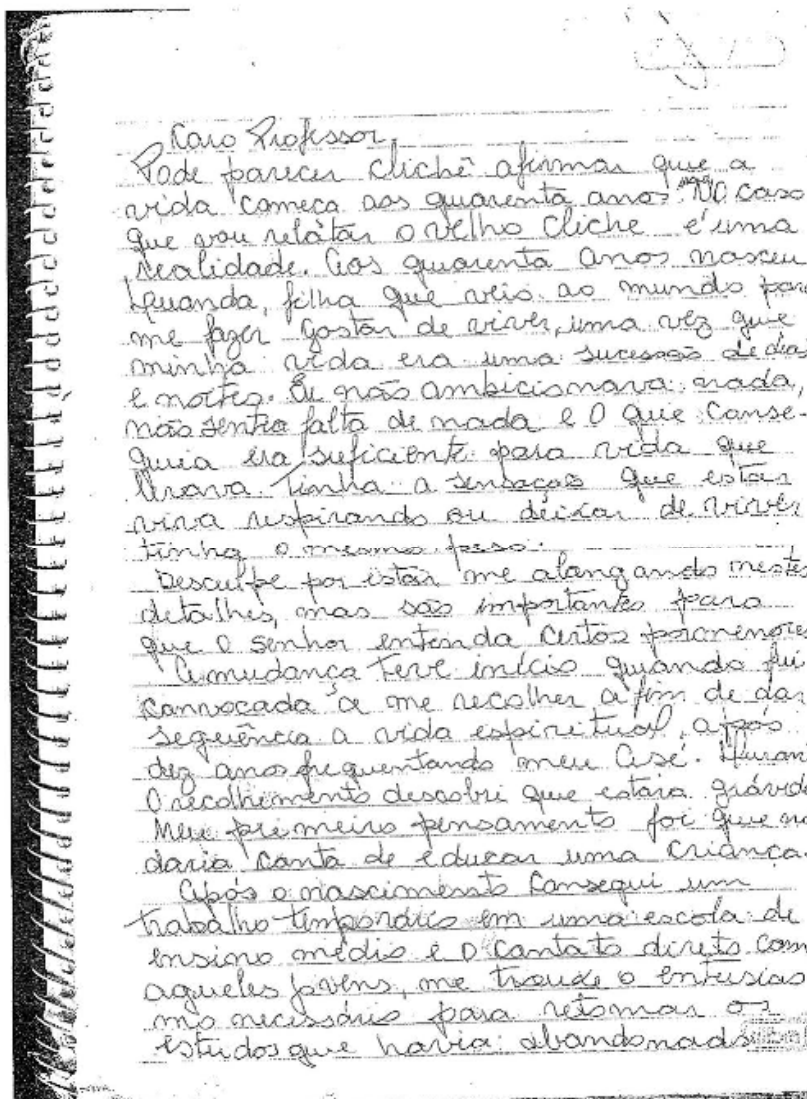 Caro Professor,
Pode parecer clichê afirmar que a
vida começa aos quarenta anos. No caso
que vou relatar o velho cliche é uma
realidade. Aos quarenta anos nasceu
filha que veio ao mundo para
me fazer gostar de viver, uma vez que
minha vida era uma sucessão de dias
e noites. Eu não ambicionava nada,
não sentia falta de nada e o que conse-
guia era suficiente para vida que
levava. Tinha a sensação que estar
viva respirando ou deixar de viver
tinha o mesmo peso.
Desculpe por estar me alongando nestes
detalhes, mas são importantes para
que o senhor entenda certos pormenores
A mudança teve início quando fui
convocada à me recolher a fim de dar
sequência a vida espiritual, após
dez anos frequentando meu Asé.
O recolhimento descobri que estava grávid
Meu primeiro pensamento foi que
daria conta de educar uma criança.
Após o nascimento consegui um
trabalho temporário em uma escola de
ensino médio e o contato direto com
aqueles jovens, me trouxe o entusias
mo necessário para retomar os
estudos que havia abandonado